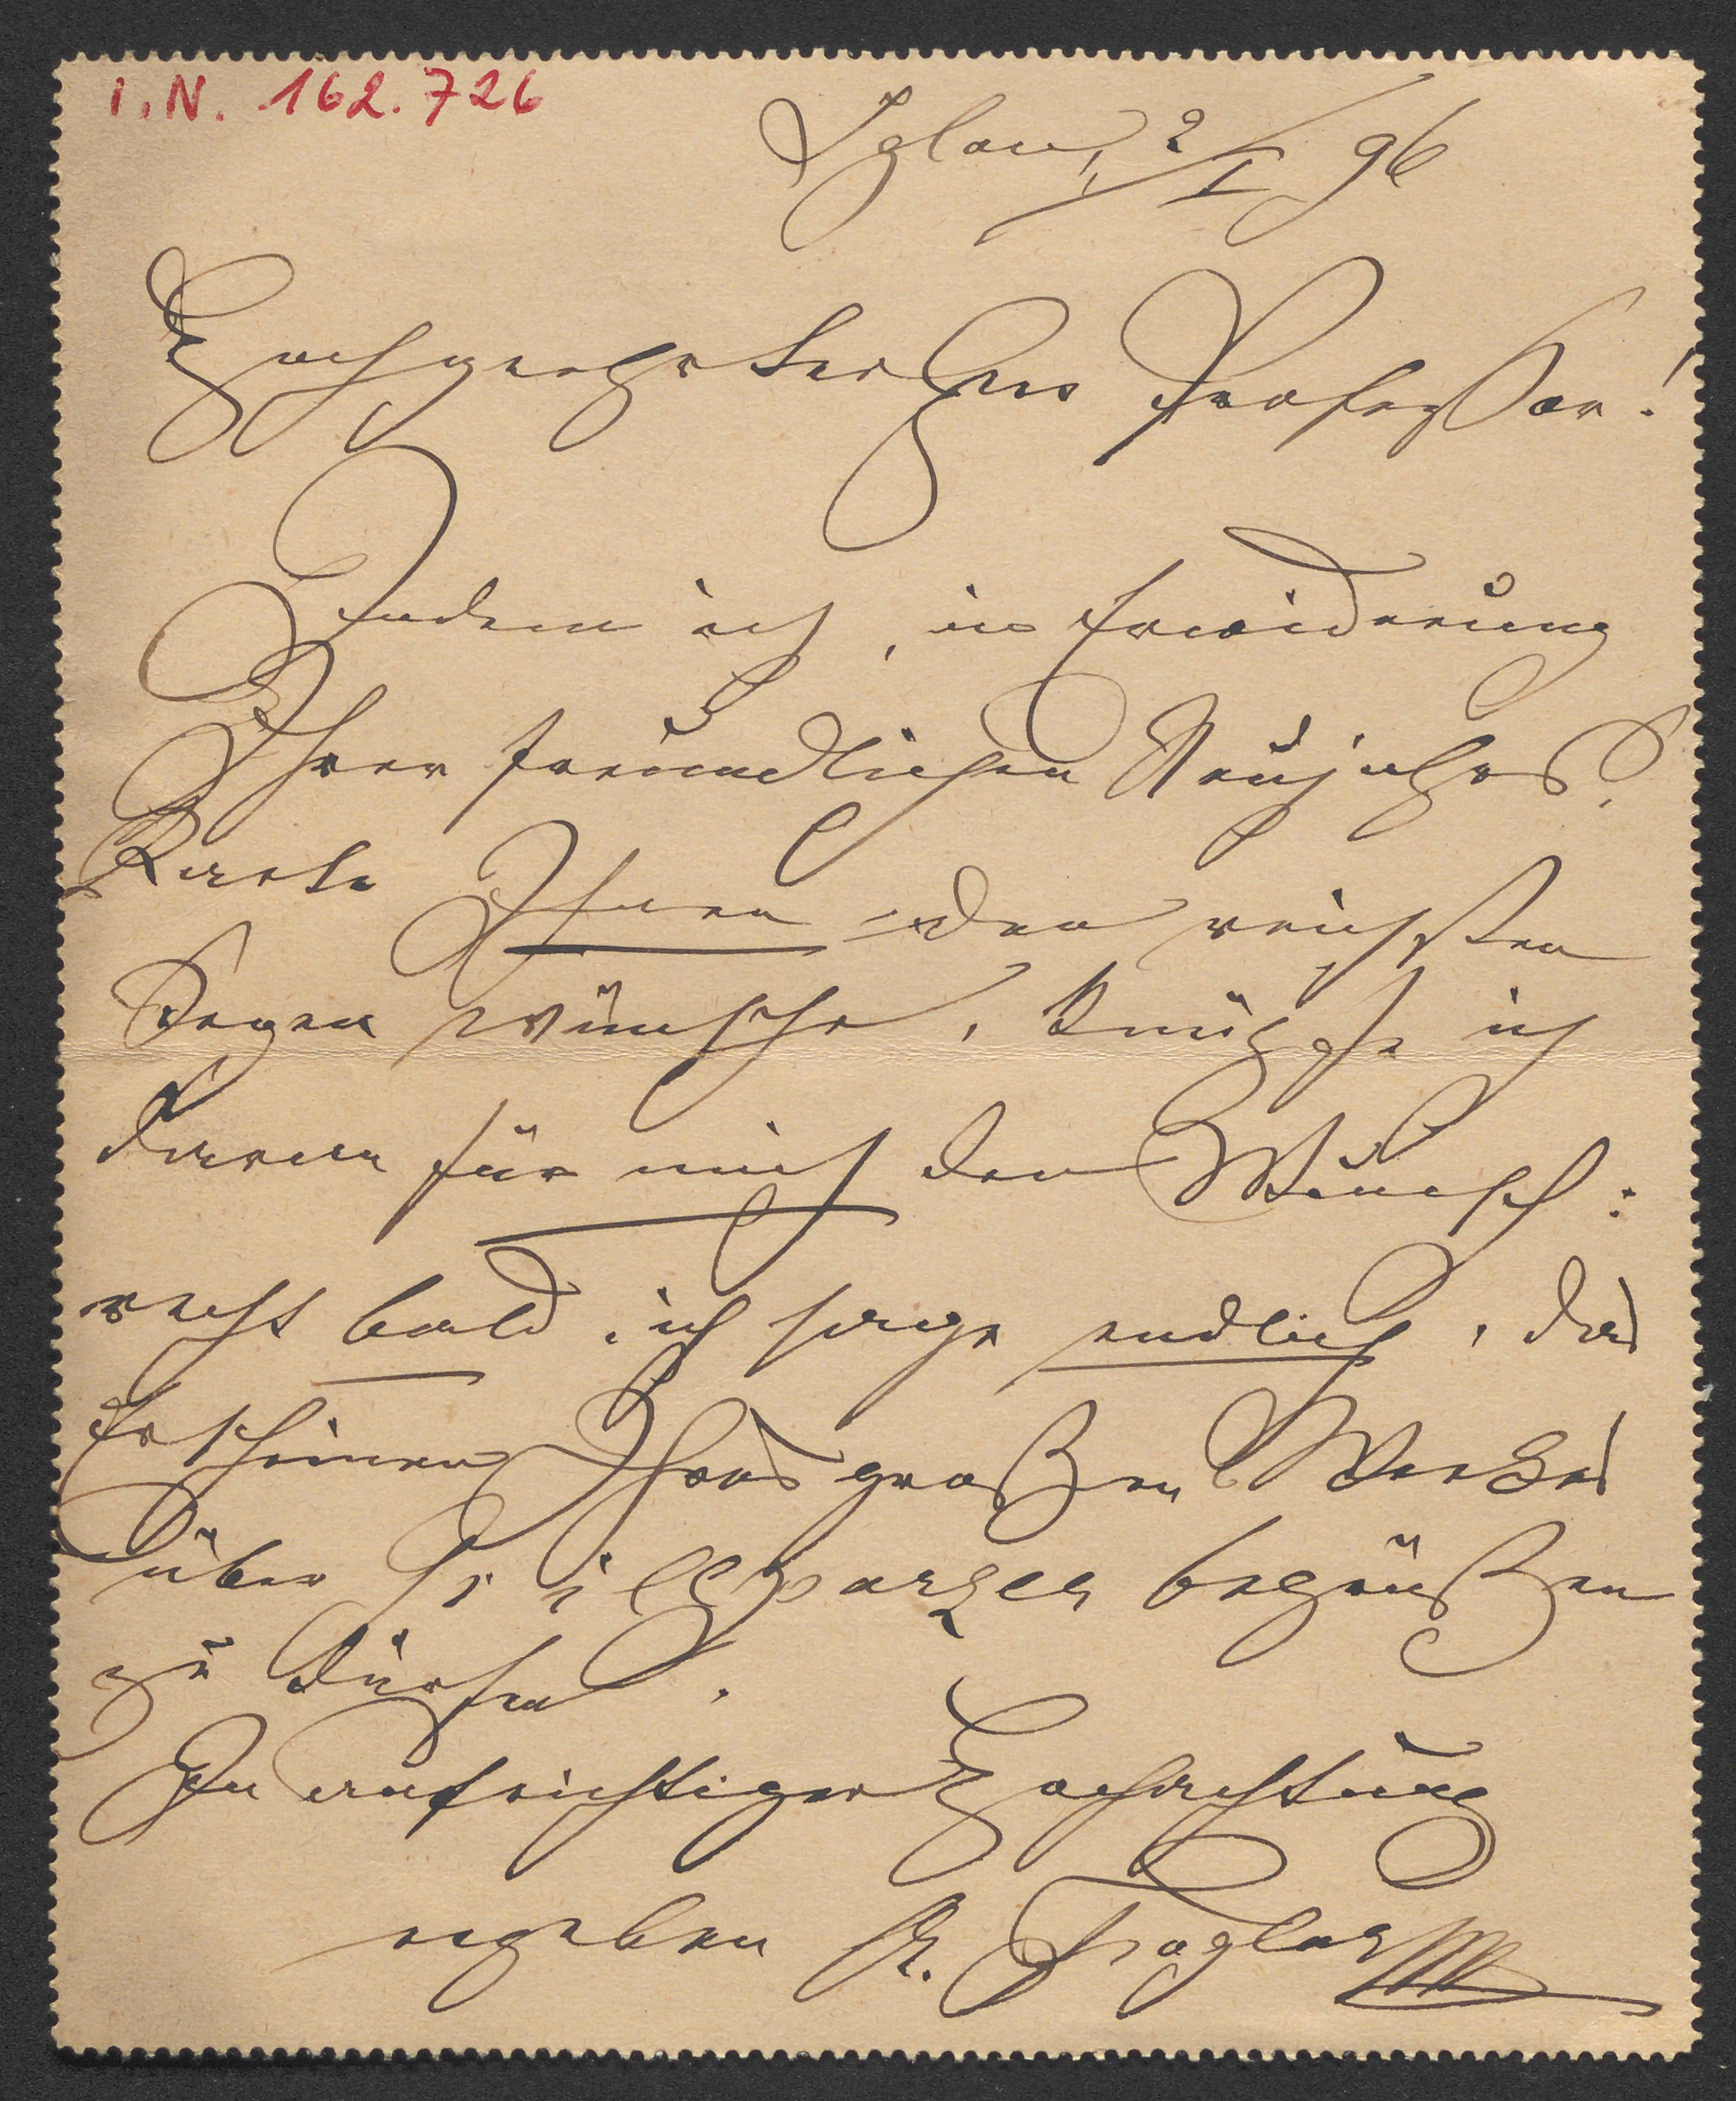 I.N. 162.726
Iglau, 2/I 96
Hochgeehrter Herr Professor!
Indem ich, in Erwiderung
Ihrer freundlichen Neujahrs-
Karte Ihnen den reichsten
Segen wünsche, knüpfe ich
daran für mich den Wunsch:
recht bald, ich sage endlich, das
Erscheinen Ihres großen Werkes
über Grillparzer begrüßen
zu dürfen.
In aufrichtiger Hochachtung
ergeben A.